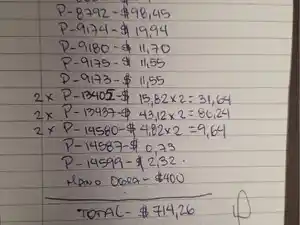 P-8792-$98,45
P-9174-$19,94
P-9180-$11,70
P-9175-$11,55
P-9173-$11,55
2x P-13405-$15,82x2=31,64
2x P-13437-$43,12x2=86,24
2x P-14580-$4,82x2=9,64
P-14587-$0,73
P-14599-$2,32.
Mano Obra-$400
TOTAL-$714,26